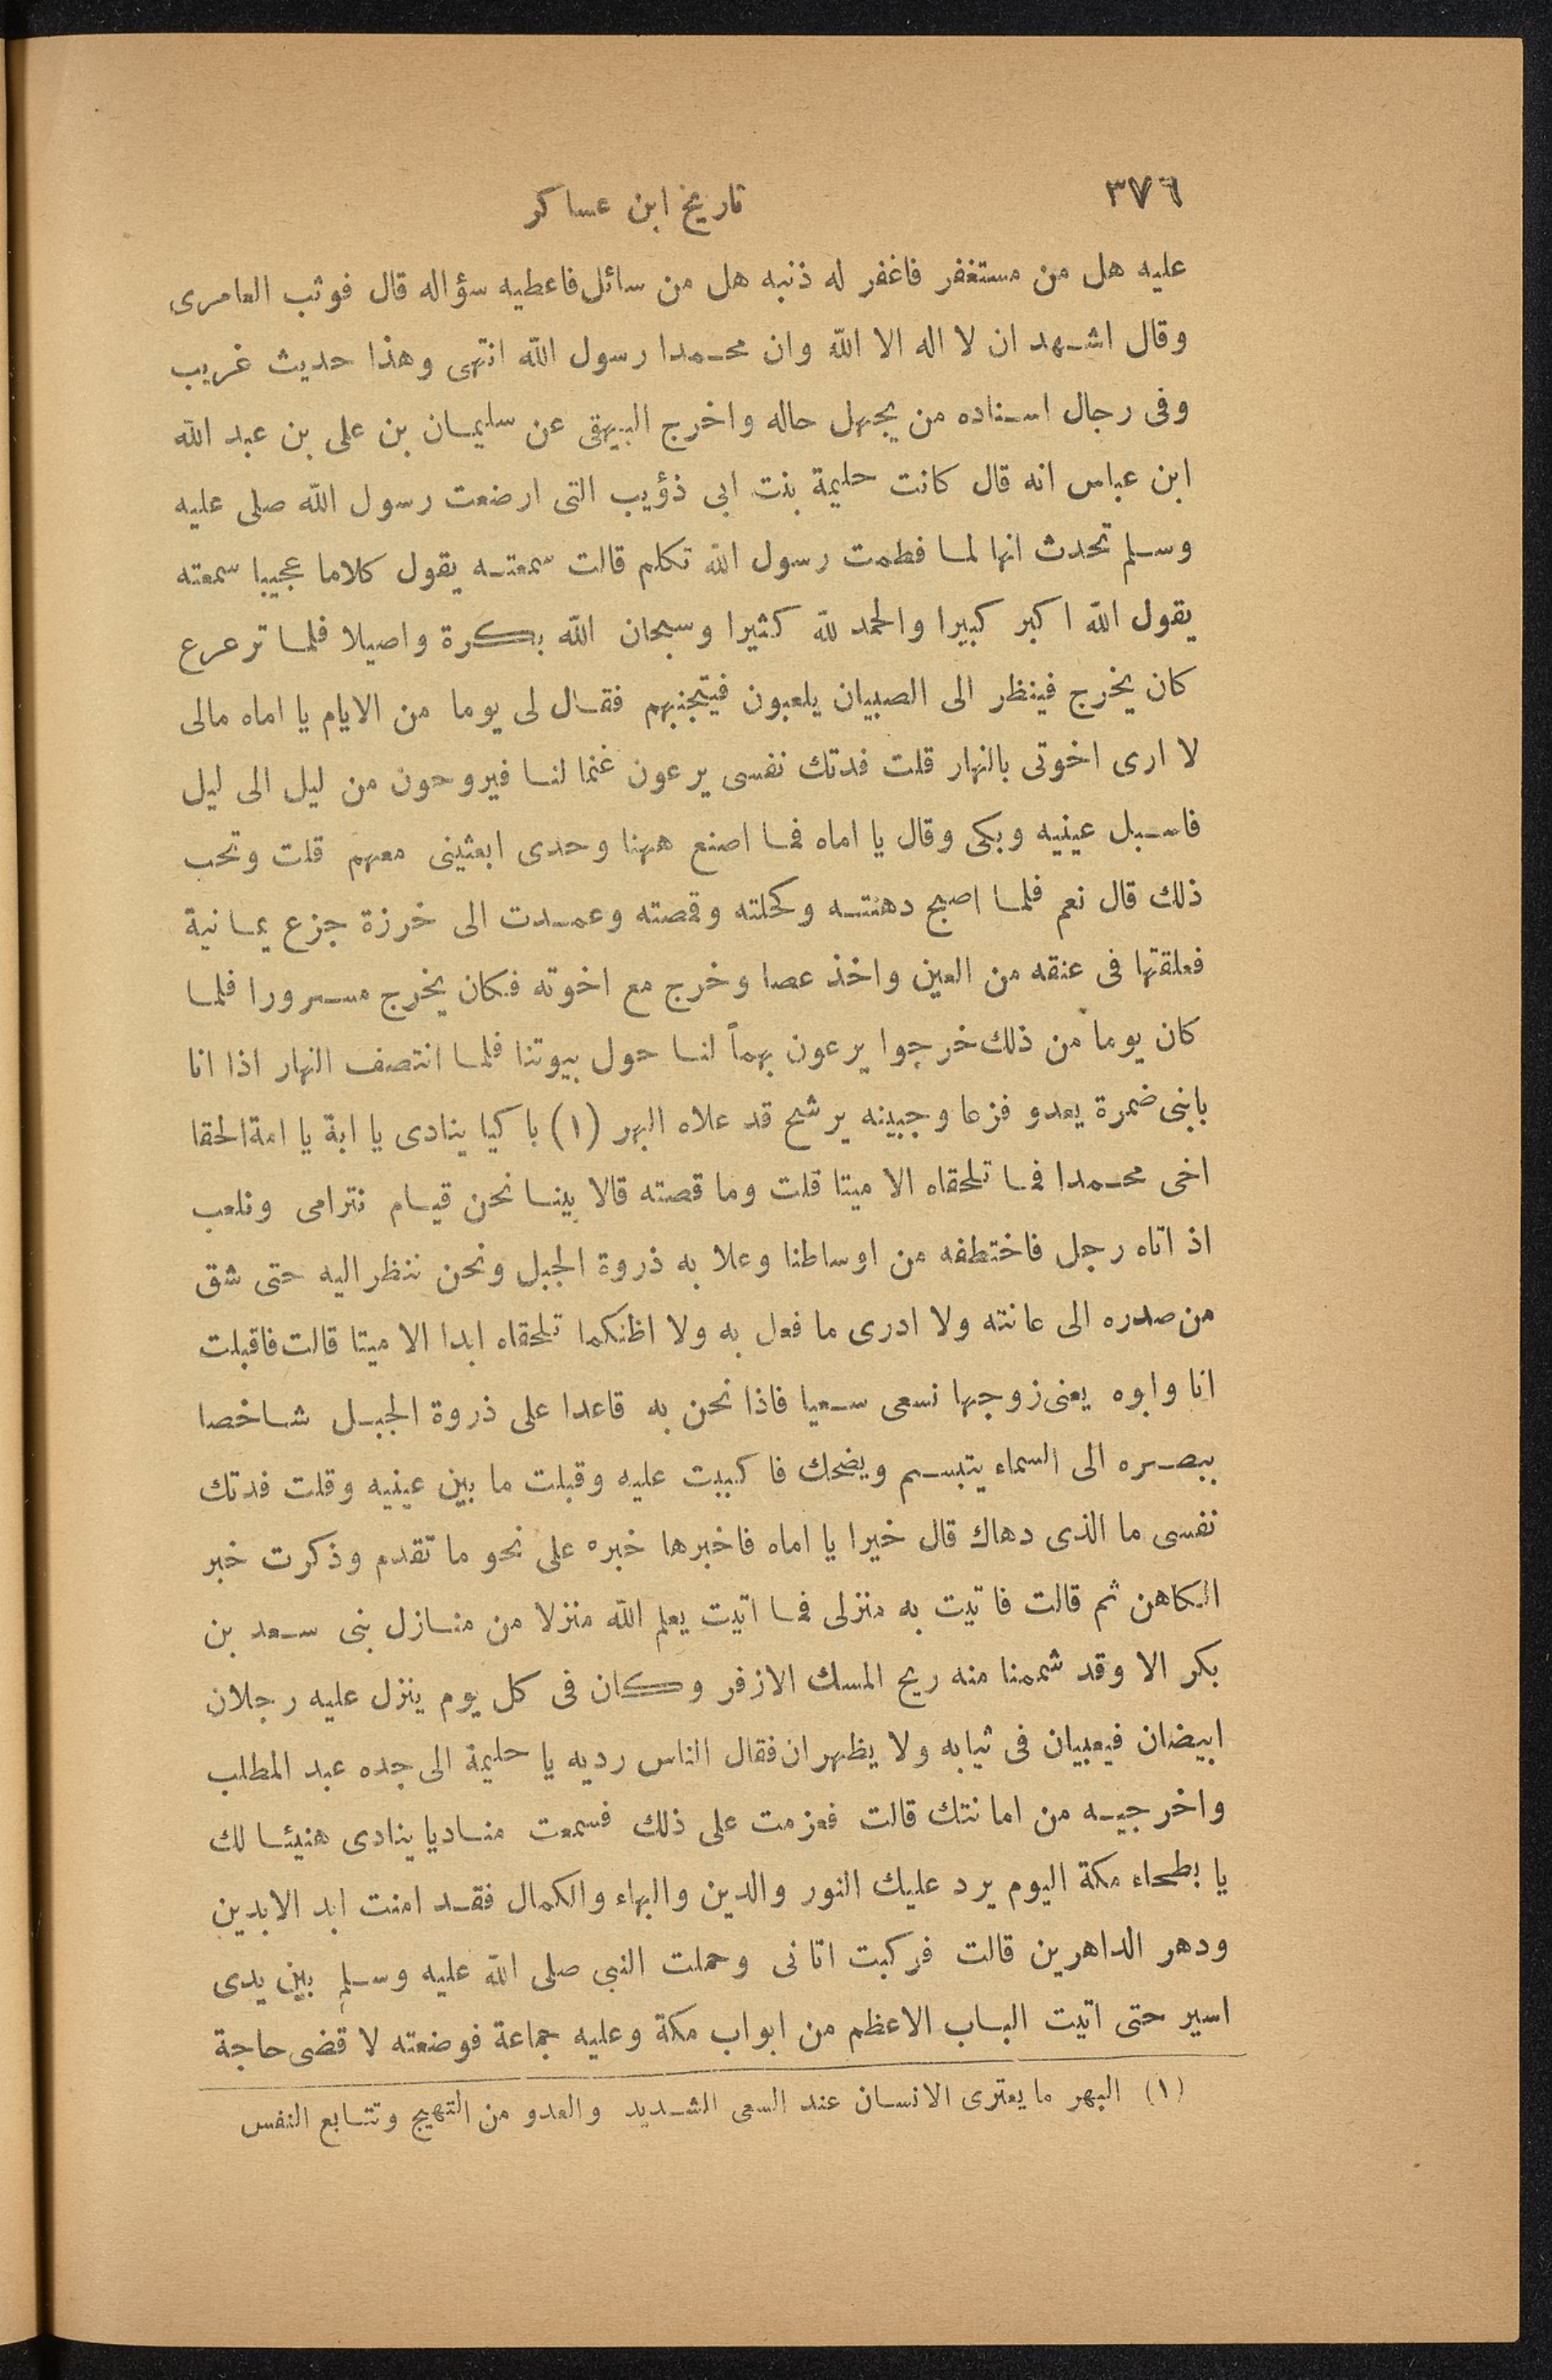 ٣٧٦
تاريخ ابن عساكر
عليه هل من مستغفر فاغفر له ذنبه هل من سائل فاعطيه سؤاله قال فوثب العامرى
وقال اشهد ان لا اله الا الله وان محمدا رسول الله انتهى وهذا حديث غريب
وفى رجال اسناده من يجهل حاله واخرج البيهقى عن سليمان بن على بن عبد الله
ابن عباس انه قال كانت حليمة بنت ابى ذؤيب التى ارضعت رسول الله صلى عليه
وسلم تحدث انها لما فطمت رسول الله تكلم قالت سمعته يقول كلاما عجيبا سمعته
يقول الله اكبر كبيرا والحمد لله كثيرا وسبحان الله بكرة واصيلا فلما ترعرع
كان يخرج فينظر الى الصبيان يلعبون فيتجنبهم فقال لى يوما من الايام يا اماه مالى
لا ارى اخوتى بالنهار قلت فدتك نفسى يرعون غنما لنا فيروحون من ليل الى ليل
فاسبل عينيه وبكى وقال يا اماه فما اصنع ههنا وحدى ابعثينى معهم قلت وتحب
ذلك قال نعم فلما اصبح دهنته وكحلته وقمصته وعمدت الى خرزة جزع يمانية
فعلقتها فى عنقه من العين واخذ عصا وخرج مع اخوته فكان يخرج مسرورا فلما
كان يوما من ذلك خرجوا يرعون بهماً لنا حول بيوتنا فلما انتصف النهار اذا انا
بابنى ضمرة يعدو فزعا وجبينه يرشح قد علاه البهر (١) باكيا ينادى يا ابة يا امة الحقا
اخى محمدا فما تلحقاه الا ميتا قلت وما قصته قالا بينا نحن قيام نترامى ونلعب
اذ اتاه رجل فاختطفه من اوساطنا وعلا به ذروة الجبل ونحن ننظر اليه حتى شق
من صدره الى عانته ولا ادرى ما فعل به ولا اظنكما تلحقاه ابدا الا ميتا قالت فاقبلت
انا وابوه يعنى زوجها نسعى سعيا فاذا نحن به قاعدا على ذروة الجبل شاخصا
ببصره الى السماء يتبسم ويضحك فاكببت عليه وقبلت ما بين عينيه وقلت فدتك
نفسى ما الذى دهاك قال خيرا يا اماه فاخبرها خبره على نحو ما تقدم وذكرت خبر
الكاهن ثم قالت فاتيت به منزلى فما اتيت يعلم الله منزلا من منازل بنى سعد بن
بكر الا وقد شممنا منه ريح المسك الازفر وكان فى كل يوم ينزل عليه رجلان
ابيضان فيعيبان فى ثيابه ولا يظهران فقال الناس رديه يا حليمة الى جده عبد المطلب
واخرجيه من امانتك قالت فعزمت على ذلك فسمعت مناديا ينادى هنيئا لك
يا بطحاء مكة اليوم يرد عليك النور والدين والبهاء والكمال فقد امنت ابد الابدين
ودهر الداهرين قالت فركبت اتانى وحملت النبى صلى الله عليه وسلم بين يدى
اسير حتى اتيت الباب الاعظم من ابواب مكة وعليه جماعة فوضعته لاقضى حاجة
(١) البهر ما يعترى الانسان عند السعى الشديد والعدو من التهيج وتتابع النفس